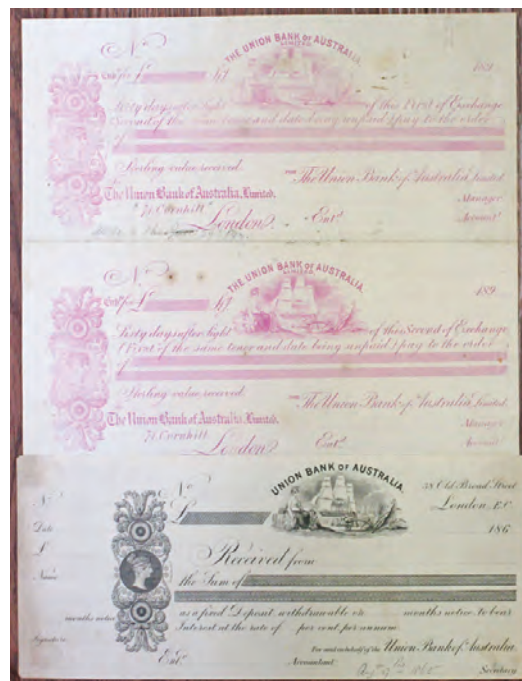 No
THE UNION BANK OF AUSTRALIA,
LIMITED.
Exch. for £ At 189
Sixty days after Sight of this First of Exchange
(Second of the same tenor and date being unpaid) pay to the order
of
Sterling value received.
FOR The Union Bank of Australia, Limited
To The Union Bank of Australia, Limited.
Manager
71 Cornhill
London. Entd. Accountt.
No
THE UNION BANK OF AUSTRALIA,
LIMITED.
Exch. for £ At 189
Sixty days after Sight of this Second of Exchange
(First of the same tenor and date being unpaid) pay to the order
of
Sterling value received.
FOR The Union Bank of Australia, Limited.
To The Union Bank of Australia, Limited.
Manager
71 Cornhill
London Entd. Accountt.
No
UNION BANK OF AUSTRALIA.
38 Old Broad Street
London, E.C.
£ 186
No
Date
£
Name
months notice
Signature
Received from
the Sum of
as a fixed Deposit withdrawable on months notice to bear
Interest at the rate of per cent. per annum.
For and on behalf of the Union Bank of Australia
Entd. Accountant. Secretary
1865